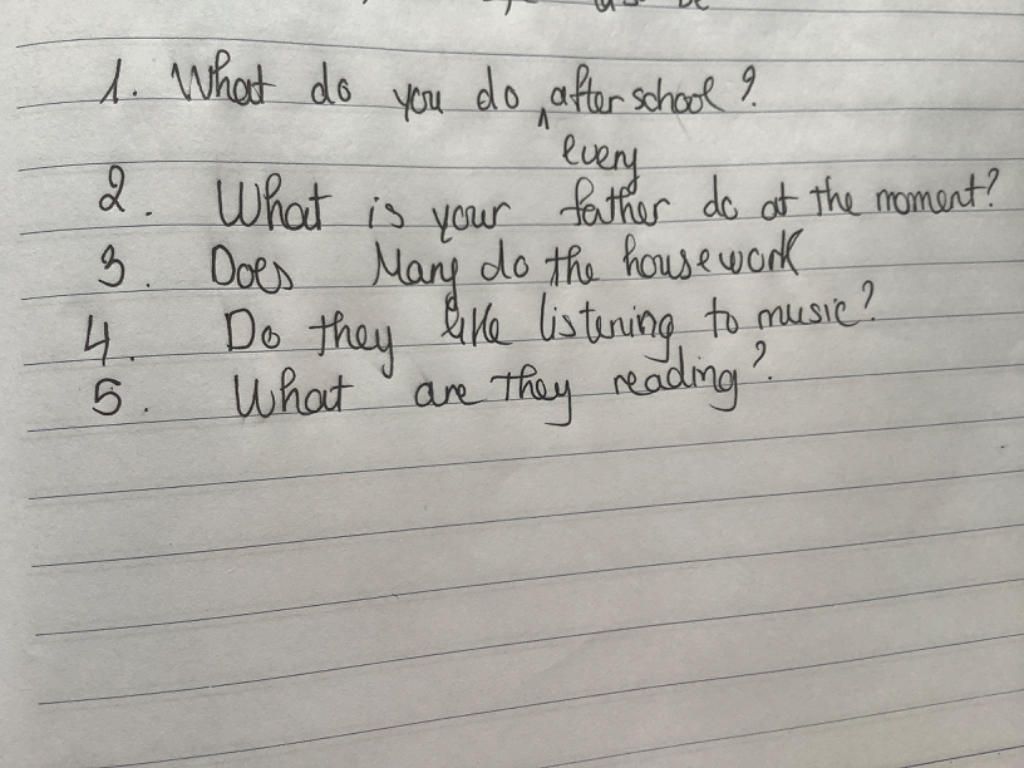 1. What do you do after school?
every
2. What is your father do at the moment?
3. Does Mary do the housework
4. Do they like listening to music?
5. What are they reading?